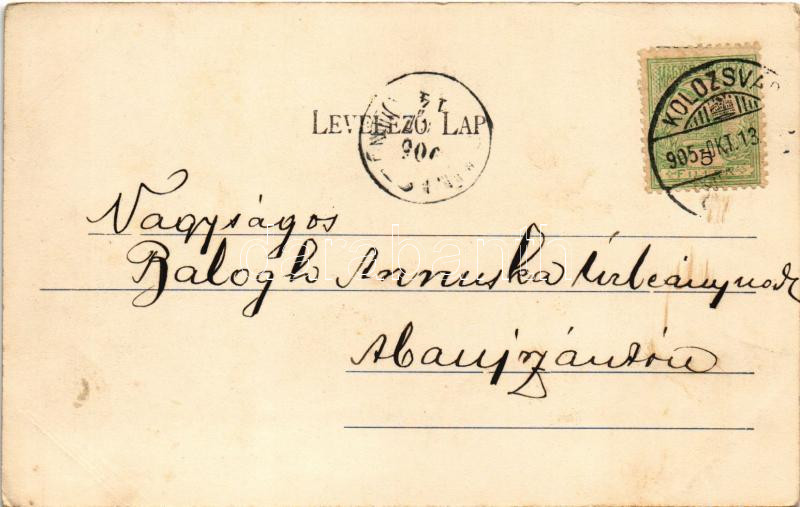 KOLOZSVÁR
905 OKT. 13
5
FILLÉR
LEVELEZŐ LAP
Nagyságos
Balogh Annuska Úrleánynak
Abaujszántón
darabanth